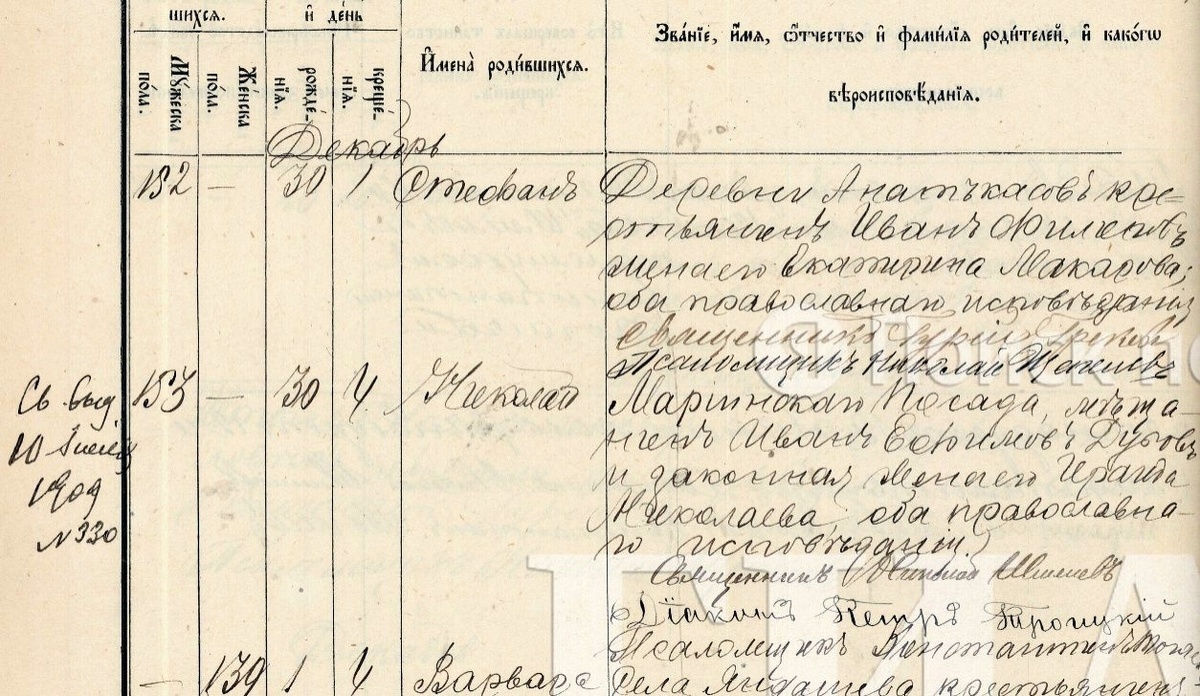 шихся.
и день
Мужеска пола.
Женска пола.
рождения.
крещения.
Имена родившихся.
Званіе, имя, отчество и фамилія родителей, и какого
вѣроисповѣданія.
Декабрь
152 — 30 1 Стефанъ
Деревни Анаткасовъ кре=
стьянинъ Иванъ Филиповъ
жена его Екатерина Макарова;
оба православнаго исповѣданія
Священникъ
Псаломщикъ Николай
Св. выд.
10
1909
N 330
153 — 30 4 Николай
Маріинскаго Посада, мѣща-
нинъ Иванъ Ефимовъ
и законная жена его Ираида
Николаева, оба православна-
го исповѣданія.
Священникъ
Діаконъ Петръ Троицкій
Псаломщикъ Константинъ
— 139 1 4 Варвара
Села Яндашева крестьянинъ